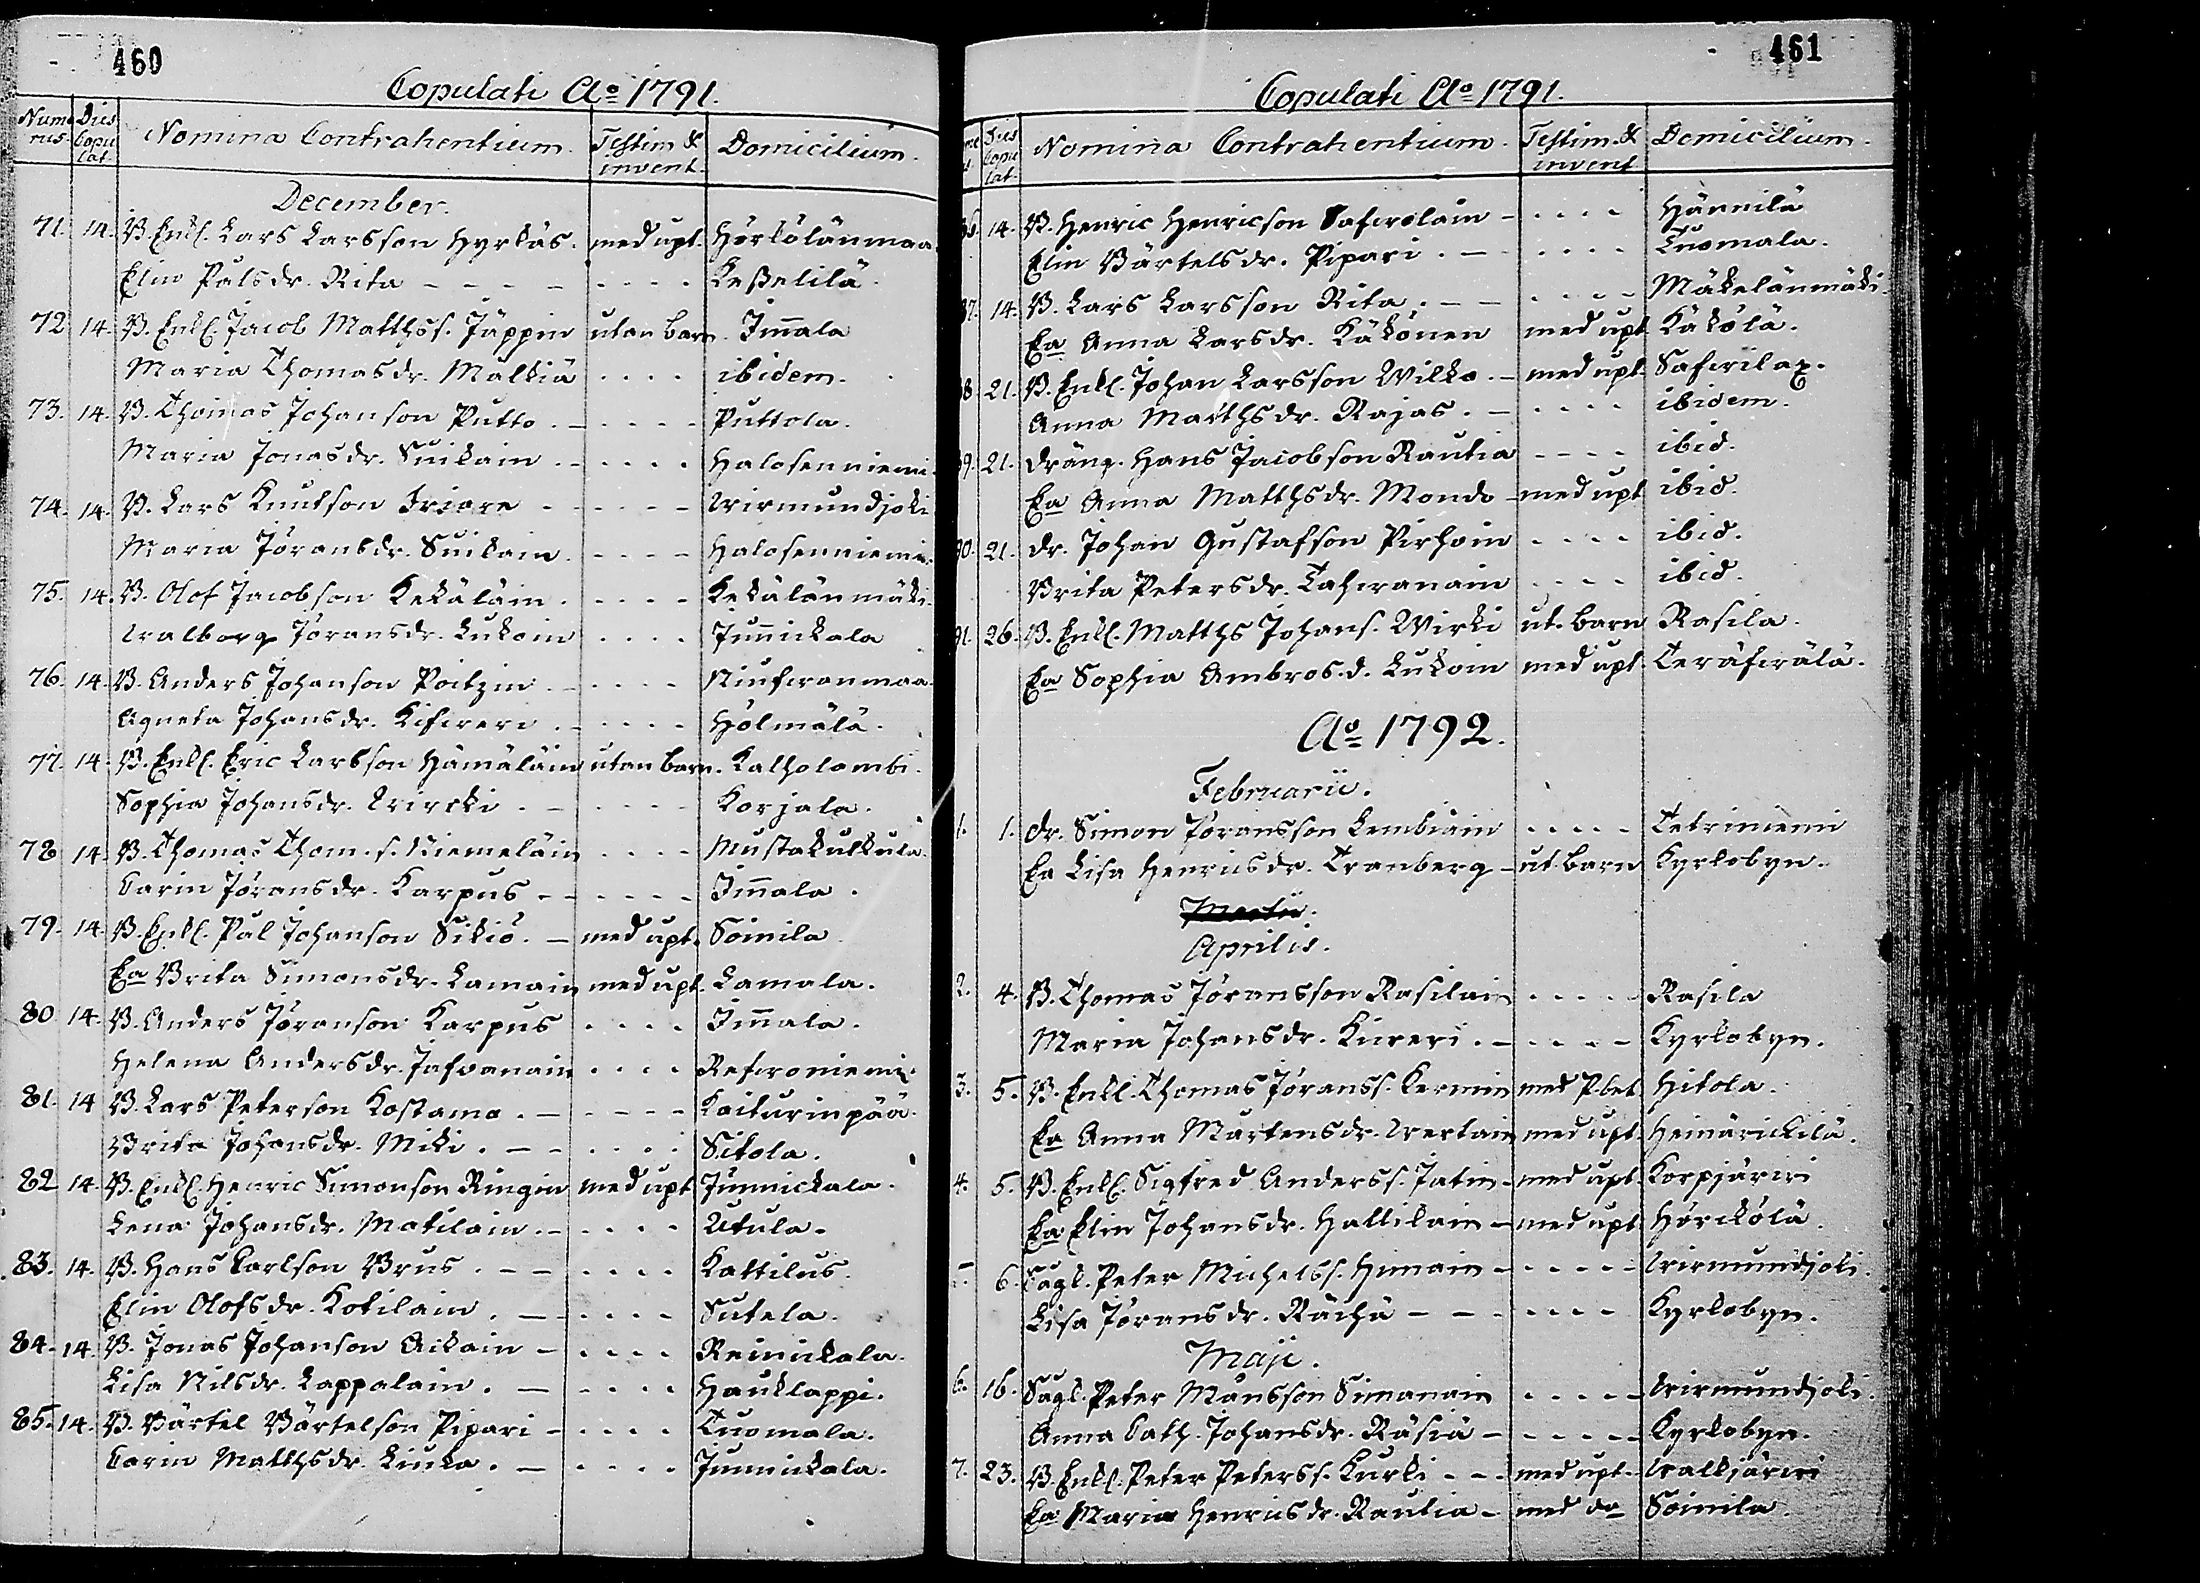 460
Copulati Ao 1791.
Numerus. Dies Copulat. Nomina Contrahentium. Testim & invent. Domicilium.
December.
71. 14. B. Enkl. Lars Larsson Hyrkäs. med upt. Hörkölänmaa
Elin Pålsdr. Rita - - - - - - - - Keßelilä.
72 14. B. Enkl. Jacob Matthss. Jäppin utan barn. Im̄ala
Maria Thomasdr. Malkiä . . . . ibidem.
73. 14. B. Thomas Johanson Putto . - - - - - Puttola.
Maria Jonasdr. Suikain . . - . . . Halosenniemi.
74. 14. B. Lars Knutson Iriore - - - - - Wirmundjoki
Maria Jöransdr. Suikain. - - - - Halosenniemi.
75. 14. B. Olof Jacobson Kekäläin . . - - - Kekälänmäki.
Walborg Jöransdr. Lukoin . . . . Jun̄ickala
76. 14. B. Anders Johanson Poitzin . - . - - - Niufwanmaa.
Agneta Johansdr. Kifweri . - . . . . Hölmälä.
77. 14. B. Enkl. Eric Larsson Hämäläin utan barn. Kalholambi.
Sophia Johansdr. Wircki . - - . . . Korjala.
78 14. B. Thomas Thom. s. Niemeläin . . . - Mustakulkula.
Carin Jöransdr. Karpus - - - - - - Im̄ala.
79. 14. B. Enkl. Pål Johanson Sikiö. - med upt. Soinila
Ea Brita Simonsdr. Lamain med upt. Lamala.
80 14. B. Anders Jöranson Karpus . . . . Im̄ala.
Helena Andersdr. Jafwanain . . . . Refwoniemi.
81. 14 B. Lars Peterson Kostamo . - - - - - Kaiturinpää.
Brita Johansdr. Miki . - - . . . . Sitola.
82 14. B. Enkl. Henric Simonson Ringin med upt Junnickala.
Lena Johansdr. Matilain . - - . . . Utula.
83. 14. B. Hans Carlson Brus . - - . . . . Kattilus.
Elin Olofsdr. Kotilain . - . . . . Sutela.
84. 14. B. Jonas Johanson Ackain - . . . . Reinickala.
Lisa Nilsdr. Lappalain . - . . . . Hauklappi.
85. 14. B. Bärtel Bärtelson Pipari - . . . . Tuomala.
Carin Matthsdr. Liuka . - . . . . Junnickala.
461
Copulati Ao 1791.
Dies Copulat. Nomina Contrahentium. Testim. & invent Domicilium.
86 14. B. Henric Henricson Safwolain - . . . . Hännilä
Elin Bärtelsdr. Pipari . - . . . . Tuomala.
87. 14. B. Lars Larsson Rita . - - . . . . Mäkelänmäki.
Ea Anna Larsdr. Käkönen med upt Käkölä.
88 21. B. Enkl. Johan Larsson Wilko - med upt. Safwilax.
Anna Matthsdr. Rajas . - . . . . ibidem.
89. 21. dräng. Hans Jacobson Rautia - - - - ibid.
Ea Anna Matthsdr. Mondo - med upt ibid.
90. 21. dr. Johan Gustafson Pirhoin - - - - ibid.
Brita Petersdr. Tahwanain . . - - ibid.
91. 26. B. Enkl. Matths Johans. Wirki ut. barn Rasila.
Ea Sophia Ambros. d. Lukoin med upt. Teräfwälä.
Ao 1792.
Februarii.
1. 1. dr. Simon Jöransson Lembiäin . . . . - Tetriniemi
Ea Lisa Henricsdr. Tranberg - ut. barn Kyrkobyn.
Martii.
Aprilis.
2. 4. B. Thomas Jöransson Rasilain . . . . - Rasila
Maria Johansdr. Kiireri . - - . . - Kyrkobyn.
3. 5. B. Enkl. Thomas Jöranss. Kermin med Pbet Hitola.
Ea Anna Mårtensdr. Wertain med upt. Heinärickilä.
4. 5. B. Enkl. Sigfred Anderss. Jatin. med upt. Korpjärwi
Ea Elin Johansdr. Hallikain - med upt Hörckölä.
5 6. Sagl. Peter Michelss. Himain - - - - - Wirmundjoki.
Lisa Jöransdr. Rächä - - - - - - Kyrkobyn.
Maji.
6. 16. Sagl. Peter Månsson Simanain . . . . - Wirmundjoki.
Anna Cath. Johansdr. Räsiä - - . . - Kyrkobyn.
7. 23. B. Enkl. Peter Peterss. Kurki - - - med upt. Walkjärwi
Ea Maria Henricsdr. Rautia - med do Soinila.